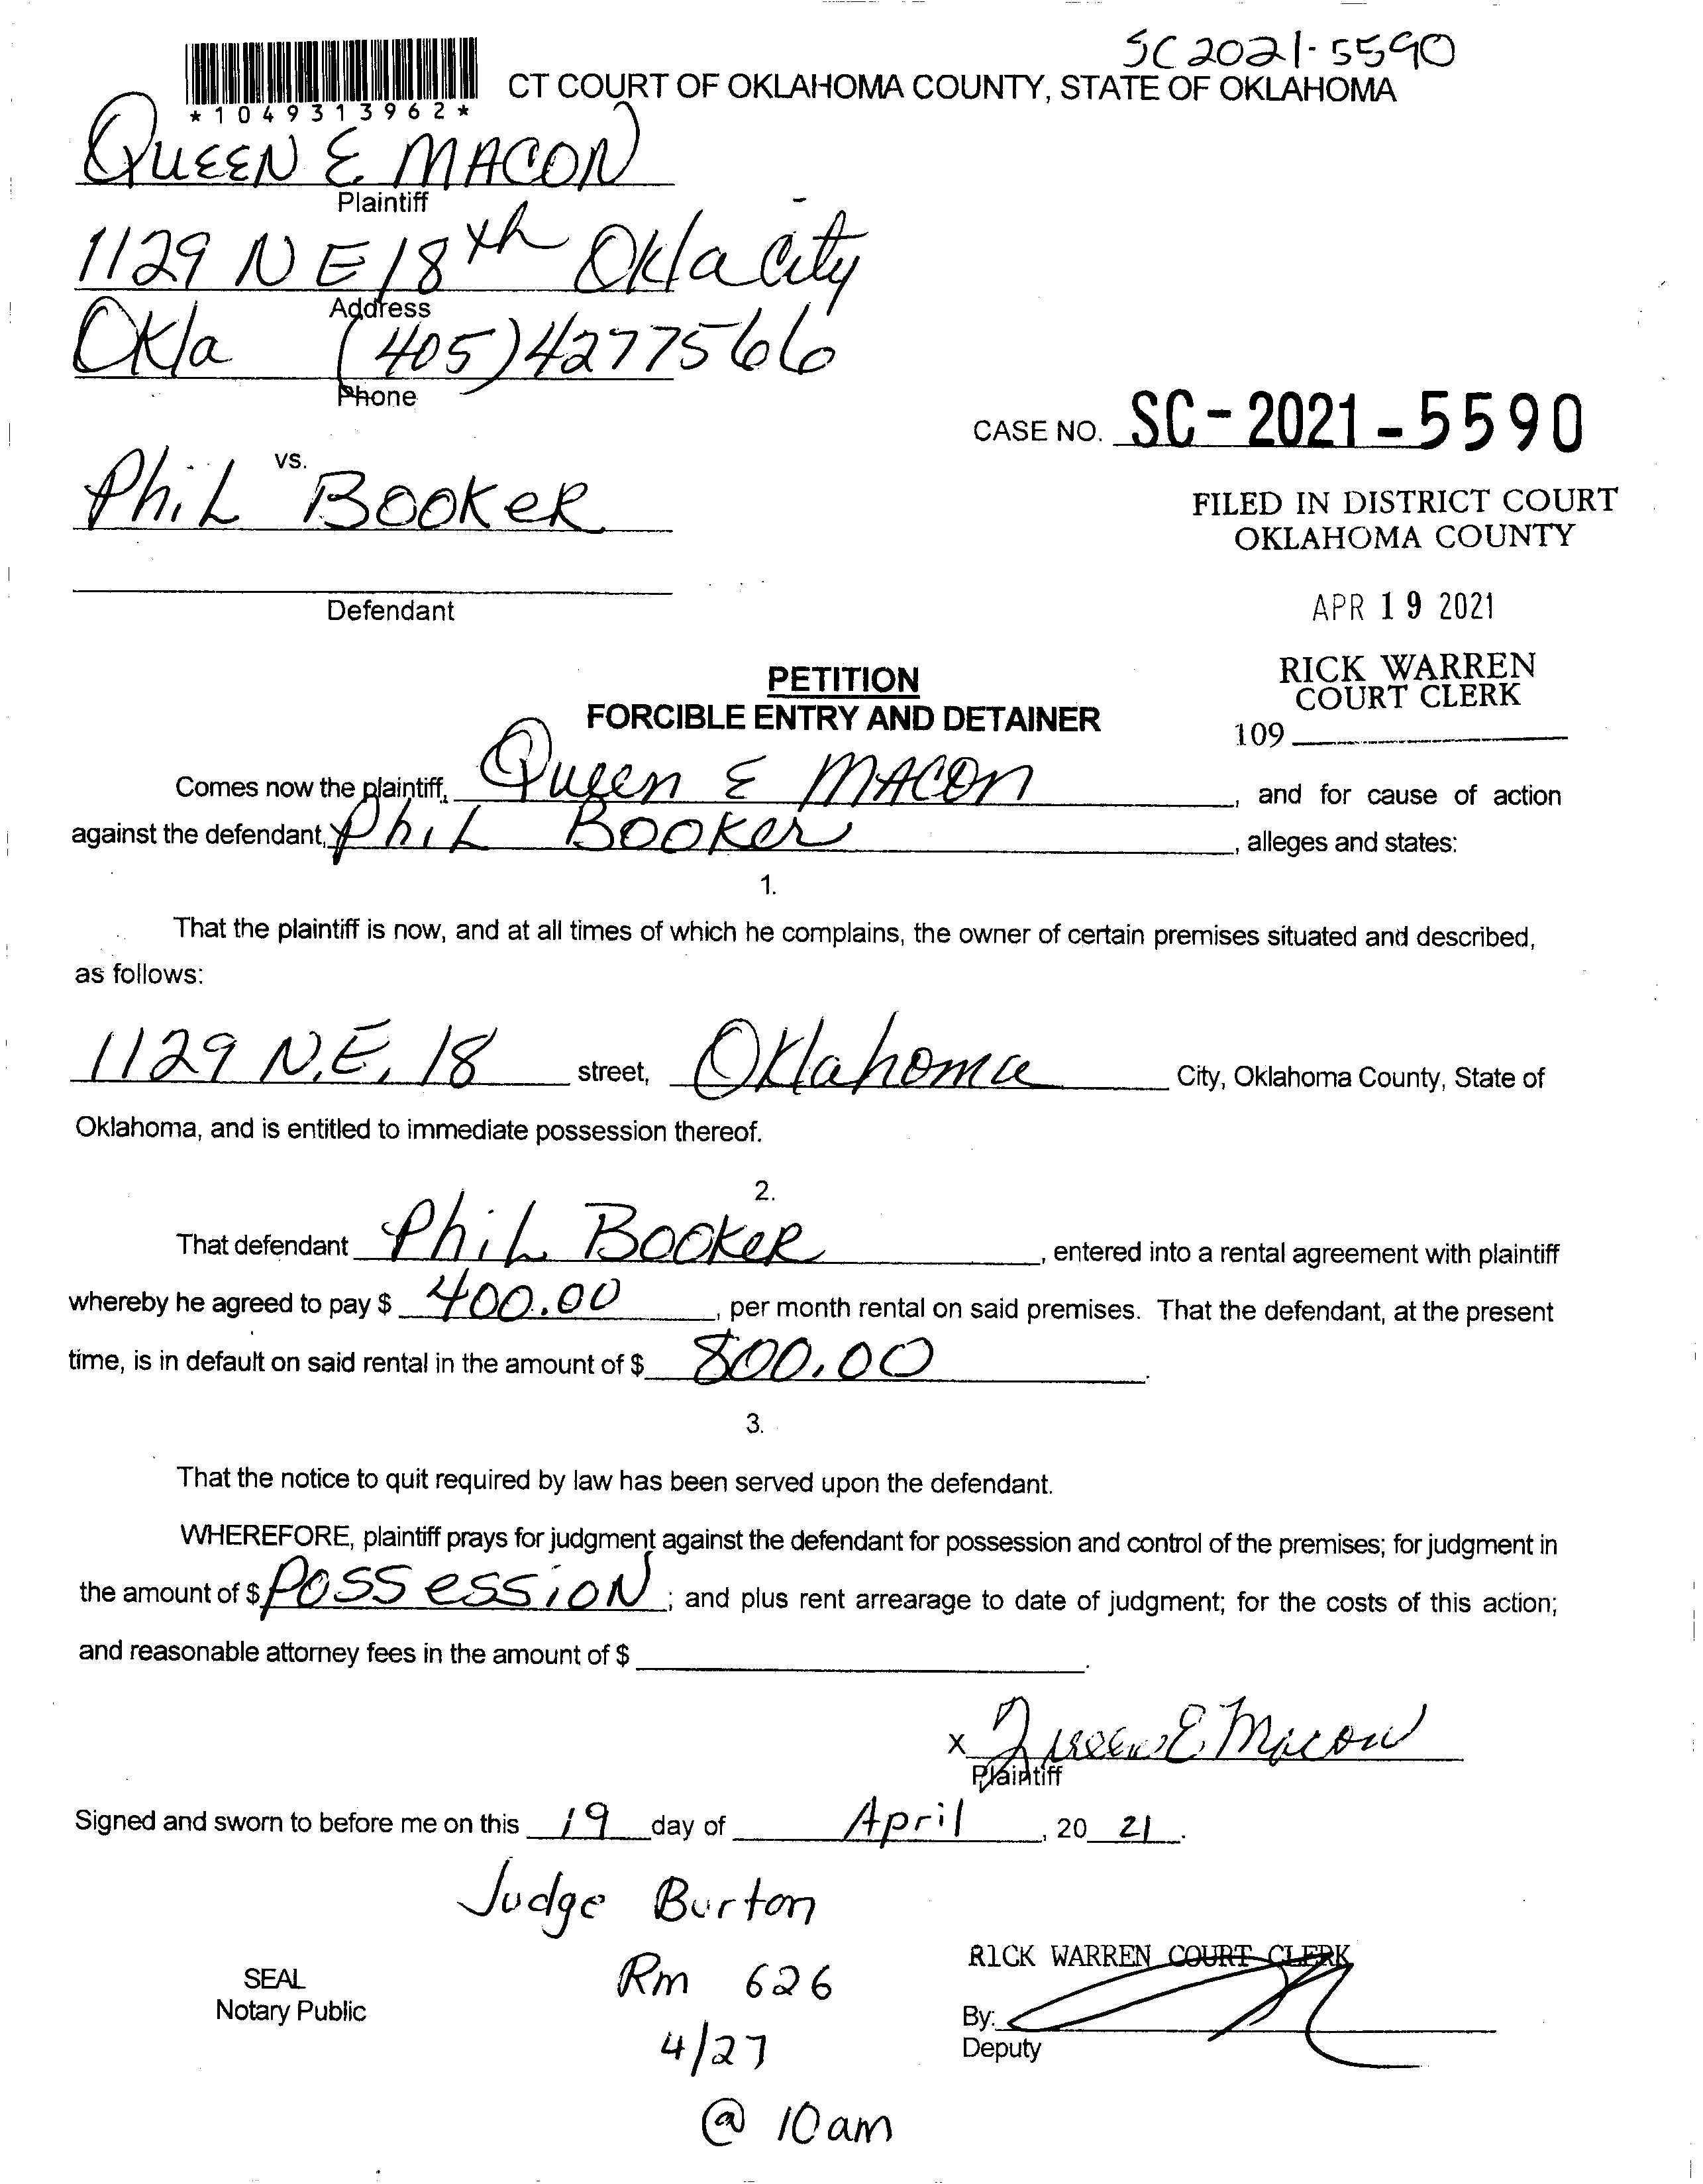 SC 2021-5590
CT COURT OF OKLAHOMA COUNTY, STATE OF OKLAHOMA
*1049313962*
QUEEN E MACON
Plaintiff
1129 NE 18th Okla City
Address
Okla (405) 4277566
Phone
CASE NO. SC-2021-5590
vs.
Phil Booker
FILED IN DISTRICT COURT
OKLAHOMA COUNTY
Defendant
APR 19 2021
RICK WARREN
COURT CLERK
109
PETITION
FORCIBLE ENTRY AND DETAINER
Comes now the plaintiff, Queen E MACON, and for cause of action
against the defendant, Phil Booker, alleges and states:
1.
That the plaintiff is now, and at all times of which he complains, the owner of certain premises situated and described,
as follows:
1129 N.E. 18 street, Oklahoma City, Oklahoma County, State of
Oklahoma, and is entitled to immediate possession thereof.
2.
That defendant Phil Booker, entered into a rental agreement with plaintiff
whereby he agreed to pay $ 400.00, per month rental on said premises. That the defendant, at the present
time, is in default on said rental in the amount of $ 800.00.
3.
That the notice to quit required by law has been served upon the defendant.
WHEREFORE, plaintiff prays for judgment against the defendant for possession and control of the premises; for judgment in
the amount of $ POSSESSION; and plus rent arrearage to date of judgment; for the costs of this action;
and reasonable attorney fees in the amount of $ .
X Queen E Macon
Plaintiff
Signed and sworn to before me on this 19 day of April, 20 21.
Judge Burton
Rm 626
4/27
@ 10am
SEAL
Notary Public
RICK WARREN COURT CLERK
By:
Deputy